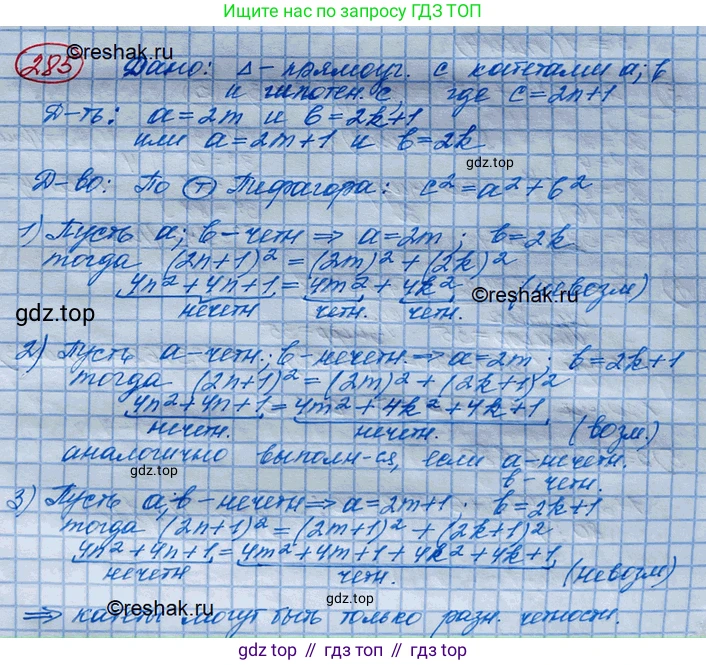 Ищите нас по запросу ГДЗ ТОП
285 ©reshak.ru
Дано: Δ-прямоуг. с катетами a; b
и гипотен. c, где c=2n+1
Д-ть: a=2m и b=2k+1
или a=2m+1 и b=2k
gdz.top
Д-во: По Т Пифагора: c²=a²+b²
1) Пусть a; b-четн ⇒ a=2m; b=2k
тогда (2n+1)²=(2m)²+(2k)²
4n²+4n+1=4m²+4k² ©reshak.ru (невозм)
нечетн четн. четн.
gdz.top
2) Пусть a-четн.; b-нечетн. ⇒ a=2m; b=2k+1
тогда (2n+1)²=(2m)²+(2k+1)²
4n²+4n+1=4m²+4k²+4k+1
нечетн. нечетн. (возм.)
gdz.top
аналогично выполн-ся, если a-нечетн.
b-четн.
3) Пусть a; b-нечетн ⇒ a=2m+1; b=2k+1
тогда (2n+1)²=(2m+1)²+(2k+1)²
4n²+4n+1=4m²+4m+1+4k²+4k+1
нечетн четн. (невозм)
gdz.top
©reshak.ru
⇒ катеты могут быть только разн. четности.
gdz.top // гдз.топ // gdz.top